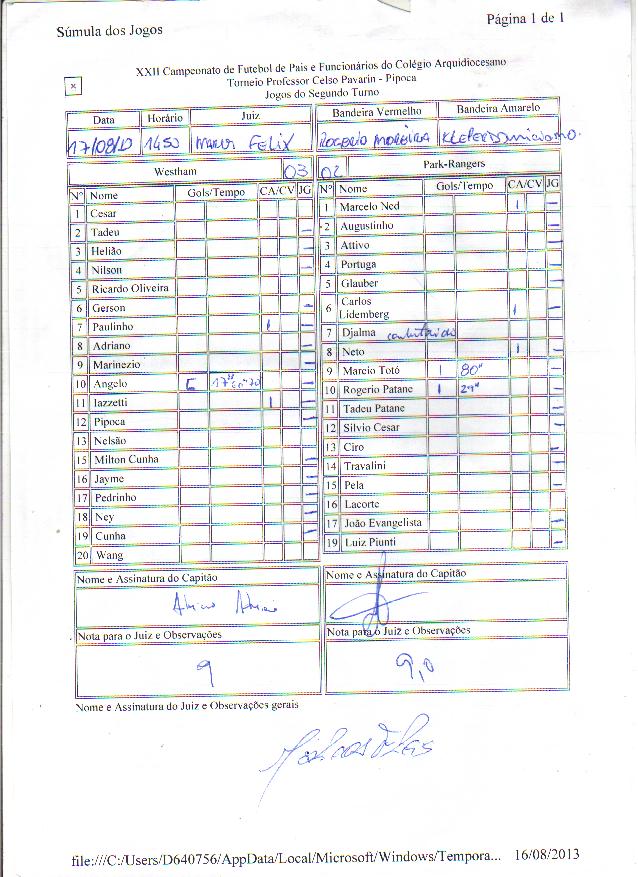 Súmula dos Jogos
Página 1 de 1
XXII Campeonato de Futebol de Pais e Funcionários do Colégio Arquidiocesano
Torneio Professor Celso Pavarin - Pipoca
Jogos do Segundo Turno
Data Horário Juiz Bandeira Vermelho Bandeira Amarelo
1450 FELIX ROGERIO MOREIRA
Westham 03 02 Park-Rangers
Nº Nome Gols/Tempo CA/CV JG Nº Nome Gols/Tempo CA/CV JG
1 Cesar 1 Marcelo Ned 1 –
2 Tadeu – 2 Augustinho –
3 Helião – 3 Attivo –
4 Nilson – 4 Portuga –
5 Ricardo Oliveira 5 Glauber –
6 Gerson – 6 Carlos Lidemberg 1 –
7 Paulinho 1 – 7 Djalma
8 Adriano – 8 Neto 1 –
9 Marinezio – 9 Marcio Totó 1 80" –
10 Angelo – 10 Rogerio Patane 1 29" –
11 Iazzetti 1 – 11 Tadeu Patane –
12 Pipoca – 12 Silvio Cesar –
13 Nelsão 13 Ciro –
15 Milton Cunha – 14 Travalini –
16 Jayme – 15 Pela –
17 Pedrinho – 16 Lacorte
18 Ney – 17 João Evangelista –
19 Cunha – 19 Luiz Piunti –
20 Wang
Nome e Assinatura do Capitão Nome e Assinatura do Capitão
Nota para o Juiz e Observações Nota para o Juiz e Observações
9 9,0
Nome e Assinatura do Juiz e Observações gerais
file:///C:/Users/D640756/AppData/Local/Microsoft/Windows/Tempora... 16/08/2013